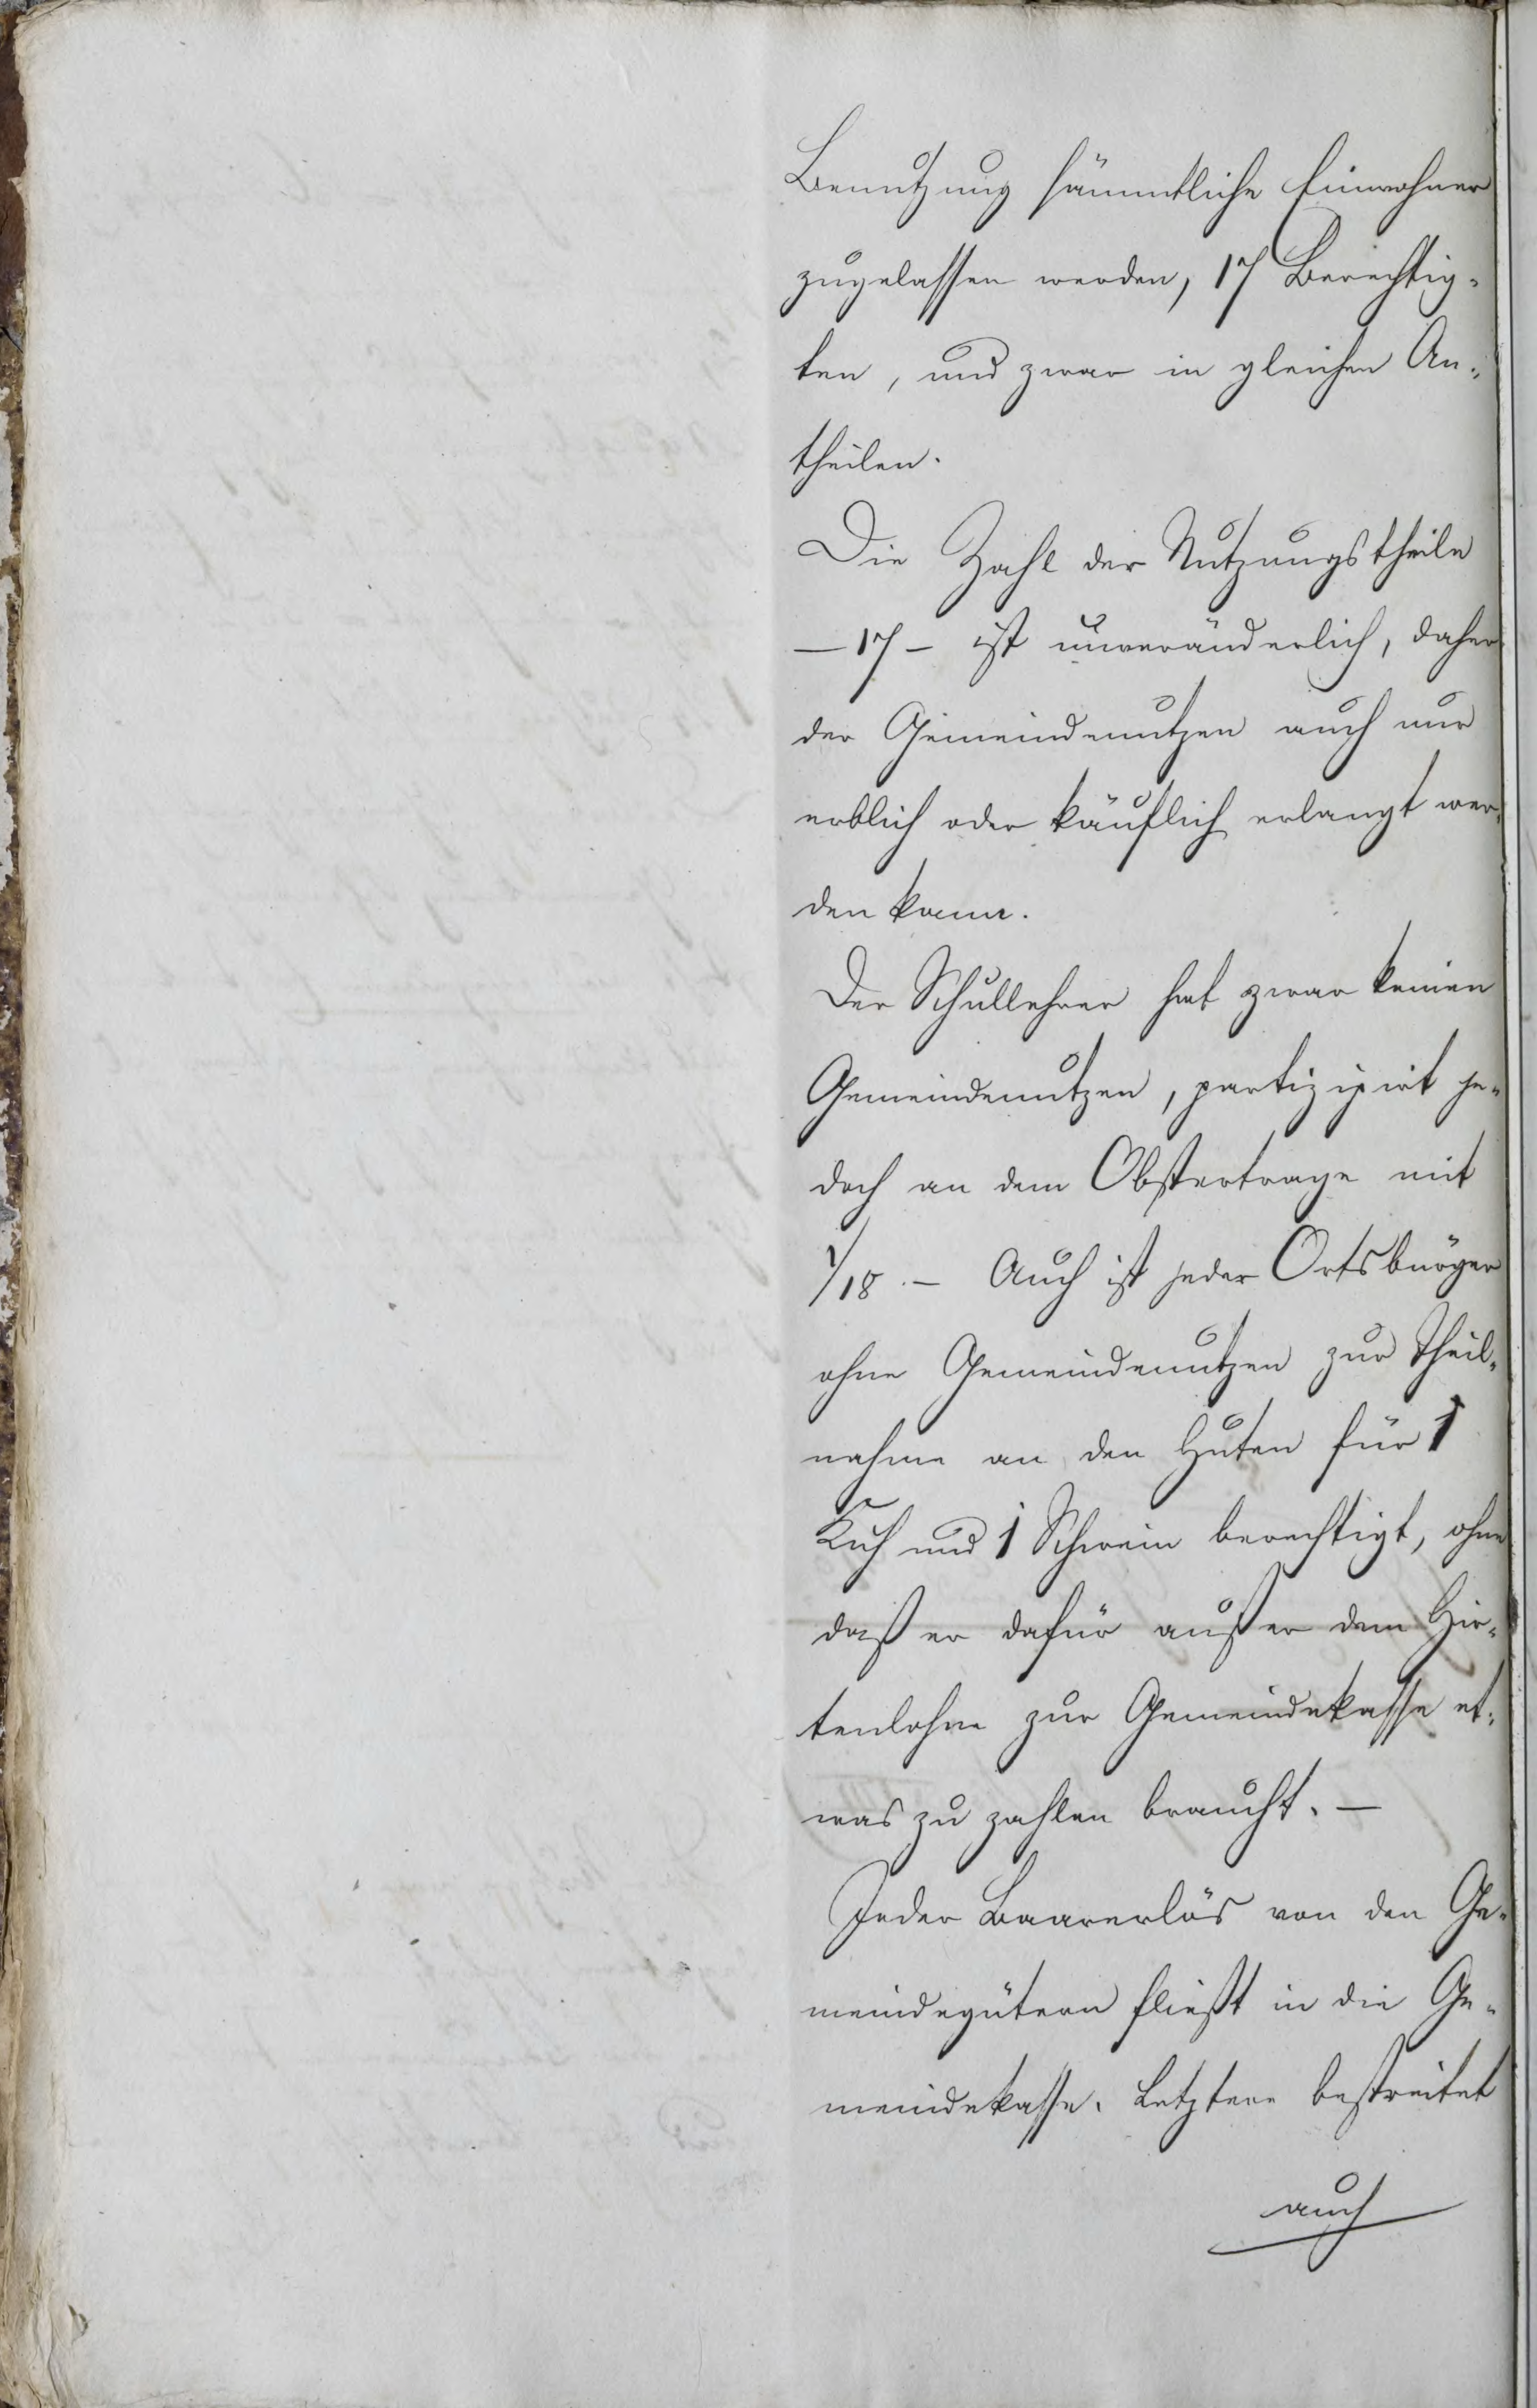 Benutzung sämmtliche Einwohner
zugelassen werden, 17 Berechtig-
ten, und zwar in gleichen An-
theilen.
Die Zahl der Nutzungstheile
— 17 — ist unveränderlich, daher
der Gemeindenutzen auch nur
erblich oder käuflich erlangt wer-
den kann.
Der Schullehrer hat zwar keinen
Gemeindenutzen, partizipirt je-
doch an dem Obstertrage mit
1/18. — Auch ist jeder Ortsbürger
ohne Gemeindenutzen zur Theil-
nahme an den Huten für 1
Kuh und 1 Schwein berechtigt, ohne
daß er dafür außer dem Hir-
tenlohne zur Gemeindekasse et-
was zu zahlen braucht. —
Jeder Baarerlös von den Ge-
meindegütern fließt in die Ge-
meindekasse. Letztere bestreitet
auch